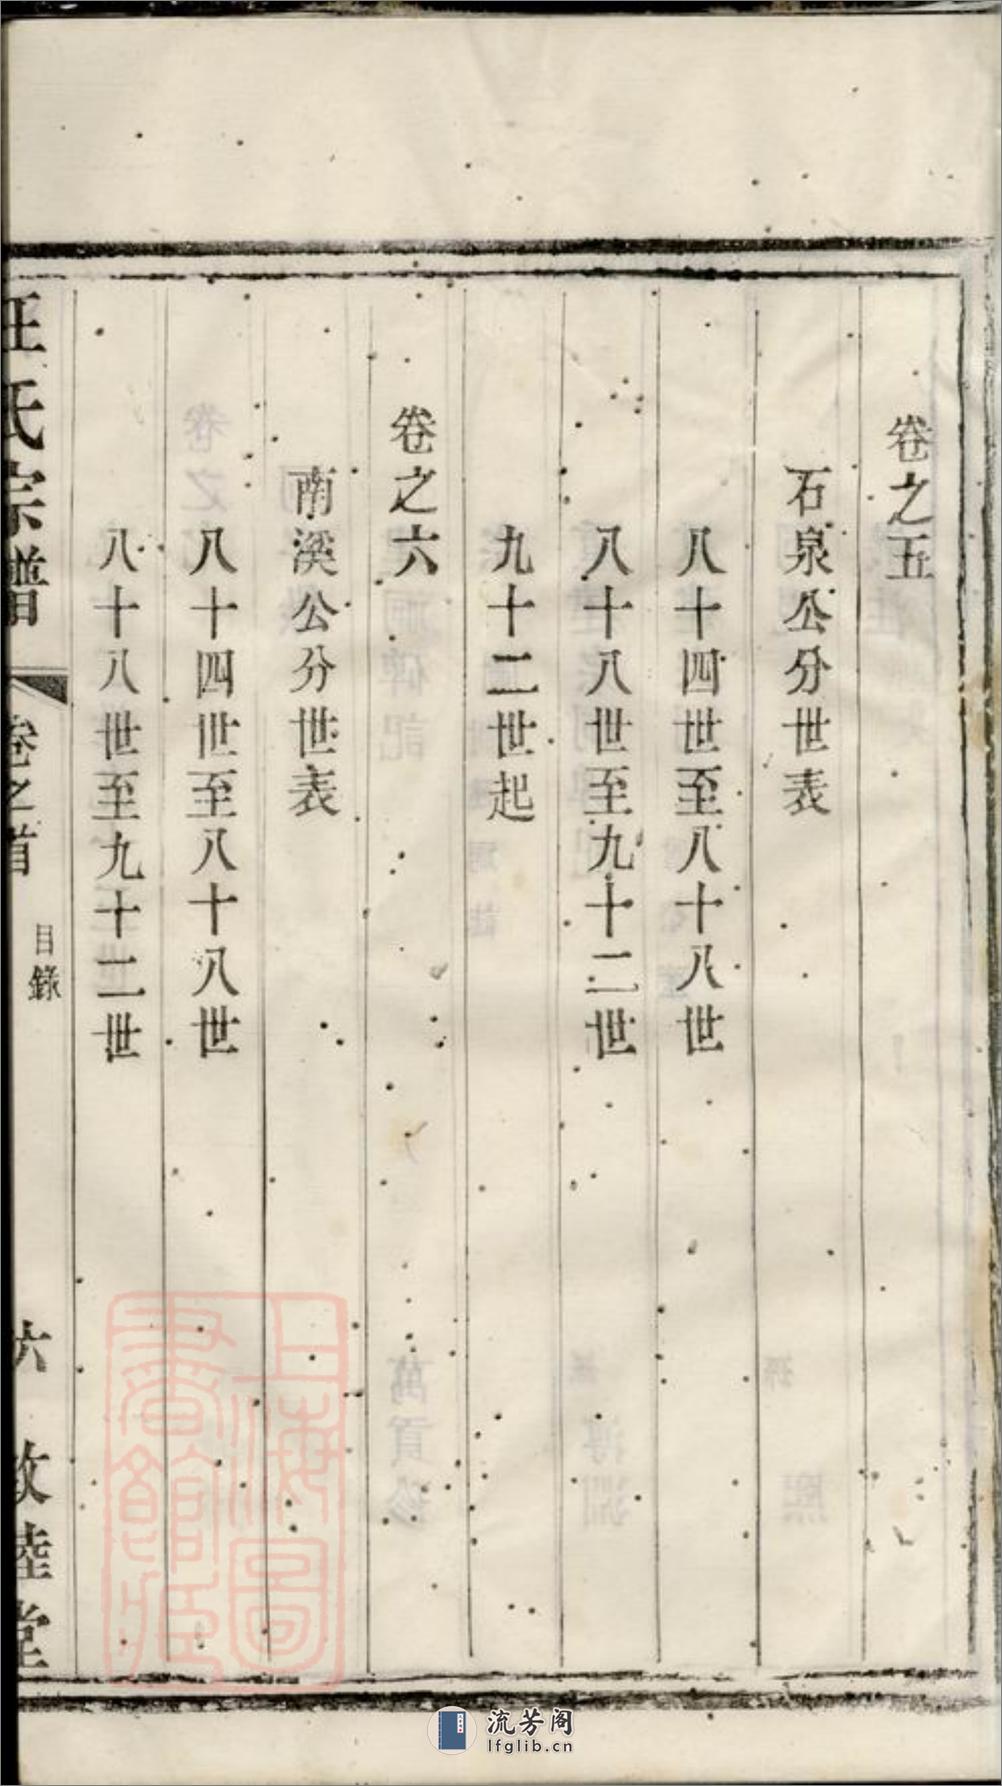 卷之五
石泉公分世表
八十四世至八十八世
八十八世至九十二世
九十二世起
卷之六
南溪公分世表
八十四世至八十八世
八十八世至九十二世
汪氏宗譜
卷之首
目錄
六
敦睦堂
上海圖書館藏
流芳阁
lfglib.cn